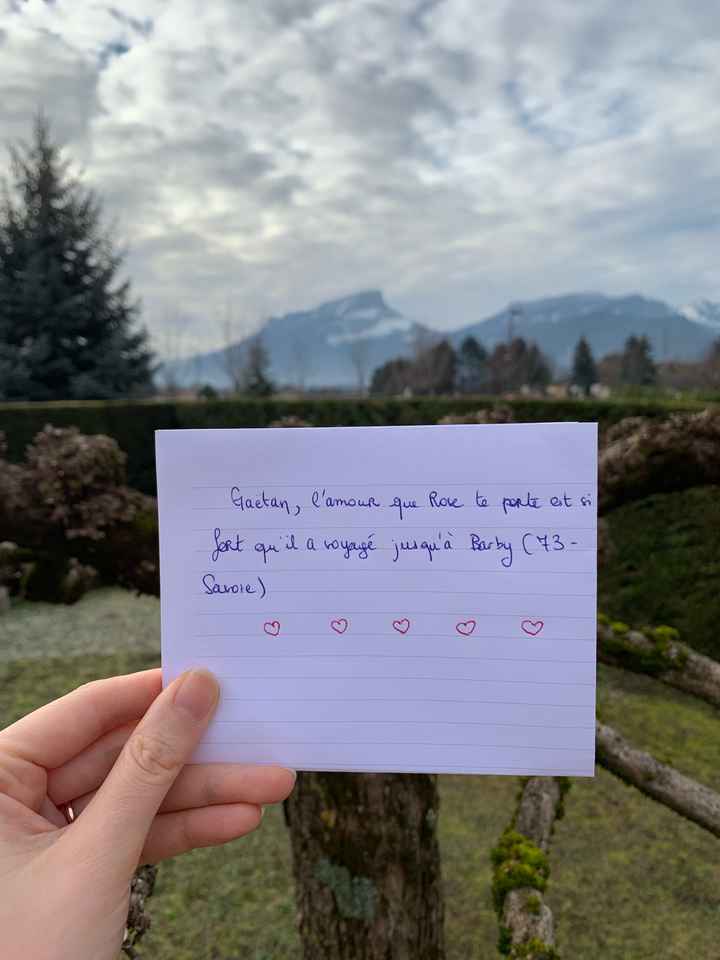 Gaëtan, l'amour que Rose te porte est si
fort qu'il a voyagé jusqu'à Barby (73-
Savoie)
♡ ♡ ♡ ♡ ♡